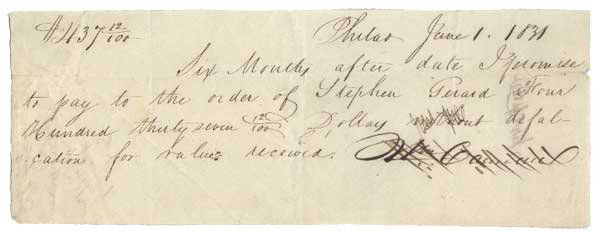 $437 12/100 Philad June 1. 1831
Six Months after date I promise
to pay to the order of Stephen Gerard Four
Hundred thirty seven 12/100 Dollars without defal-
cation for value received.
Wm